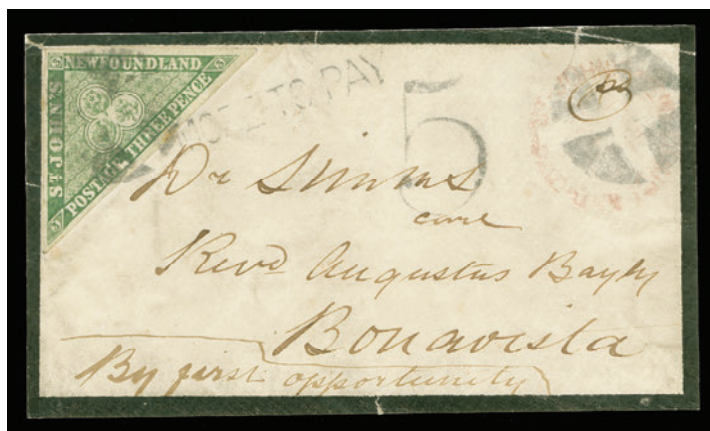 NEWFOUNDLAND
ST JOHN'S
POSTAGE THREE PENCE
MORE TO PAY
5
Dr Simms
care
Revd Augustus Bayly
Bonavista
By first opportunity